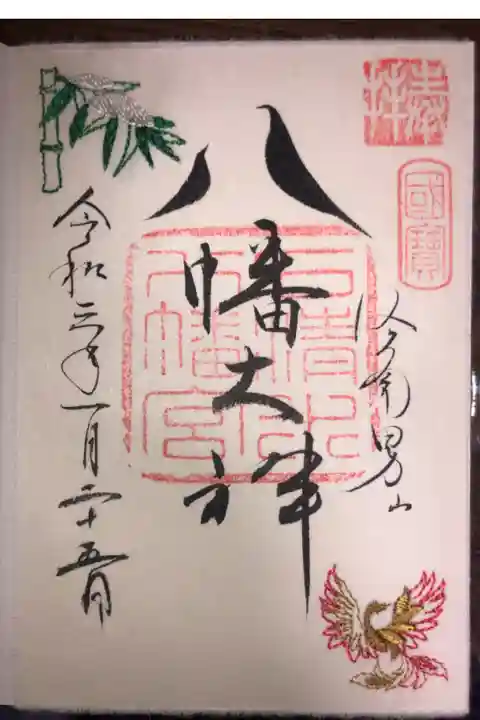 奉拝
國寶
洛南男山
八幡大神
石清水
八幡宮
令和三年一月二十五日